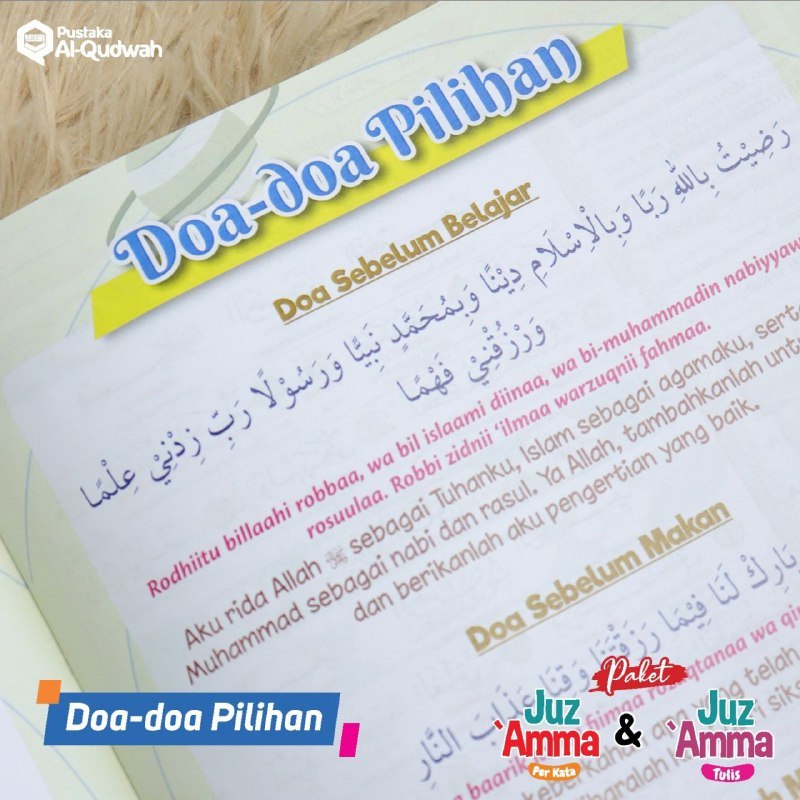 Pustaka
Al-Qudwah
Doa-doa Pilihan
Doa Sebelum Belajar
رَضِيْتُ بِاللهِ رَبًا وَبِالْاِسْلَامِ دِيْنًا وَبِمُحَمَّدٍ نَبِيًّا وَرَسُوْلًا رَبِّ زِدْنِيْ عِلْمًا
وَرْزُقْنِيْ فَهْمًا
Rodhiitu billaahi robbaa, wa bil islaami diinaa, wa bi-muhammadin nabiyyaw
rosuulaa. Robbi zidnii 'ilmaa warzuqnii fahmaa.
Aku rida Allah ﷻ sebagai Tuhanku, Islam sebagai agamaku, serta
Muhammad sebagai nabi dan rasul. Ya Allah, tambahkanlah untu
dan berikanlah aku pengertian yang baik.
Doa Sebelum Makan
بَارِكْ لَنَا فِيْمَا رَزَقْتَنَا وَقِنَا عَذَابَ النَّارِ
fiimaa
wa
yang telah
Doa-doa Pilihan
Paket
Juz 'Amma Per Kata
&
Juz 'Amma Tulis